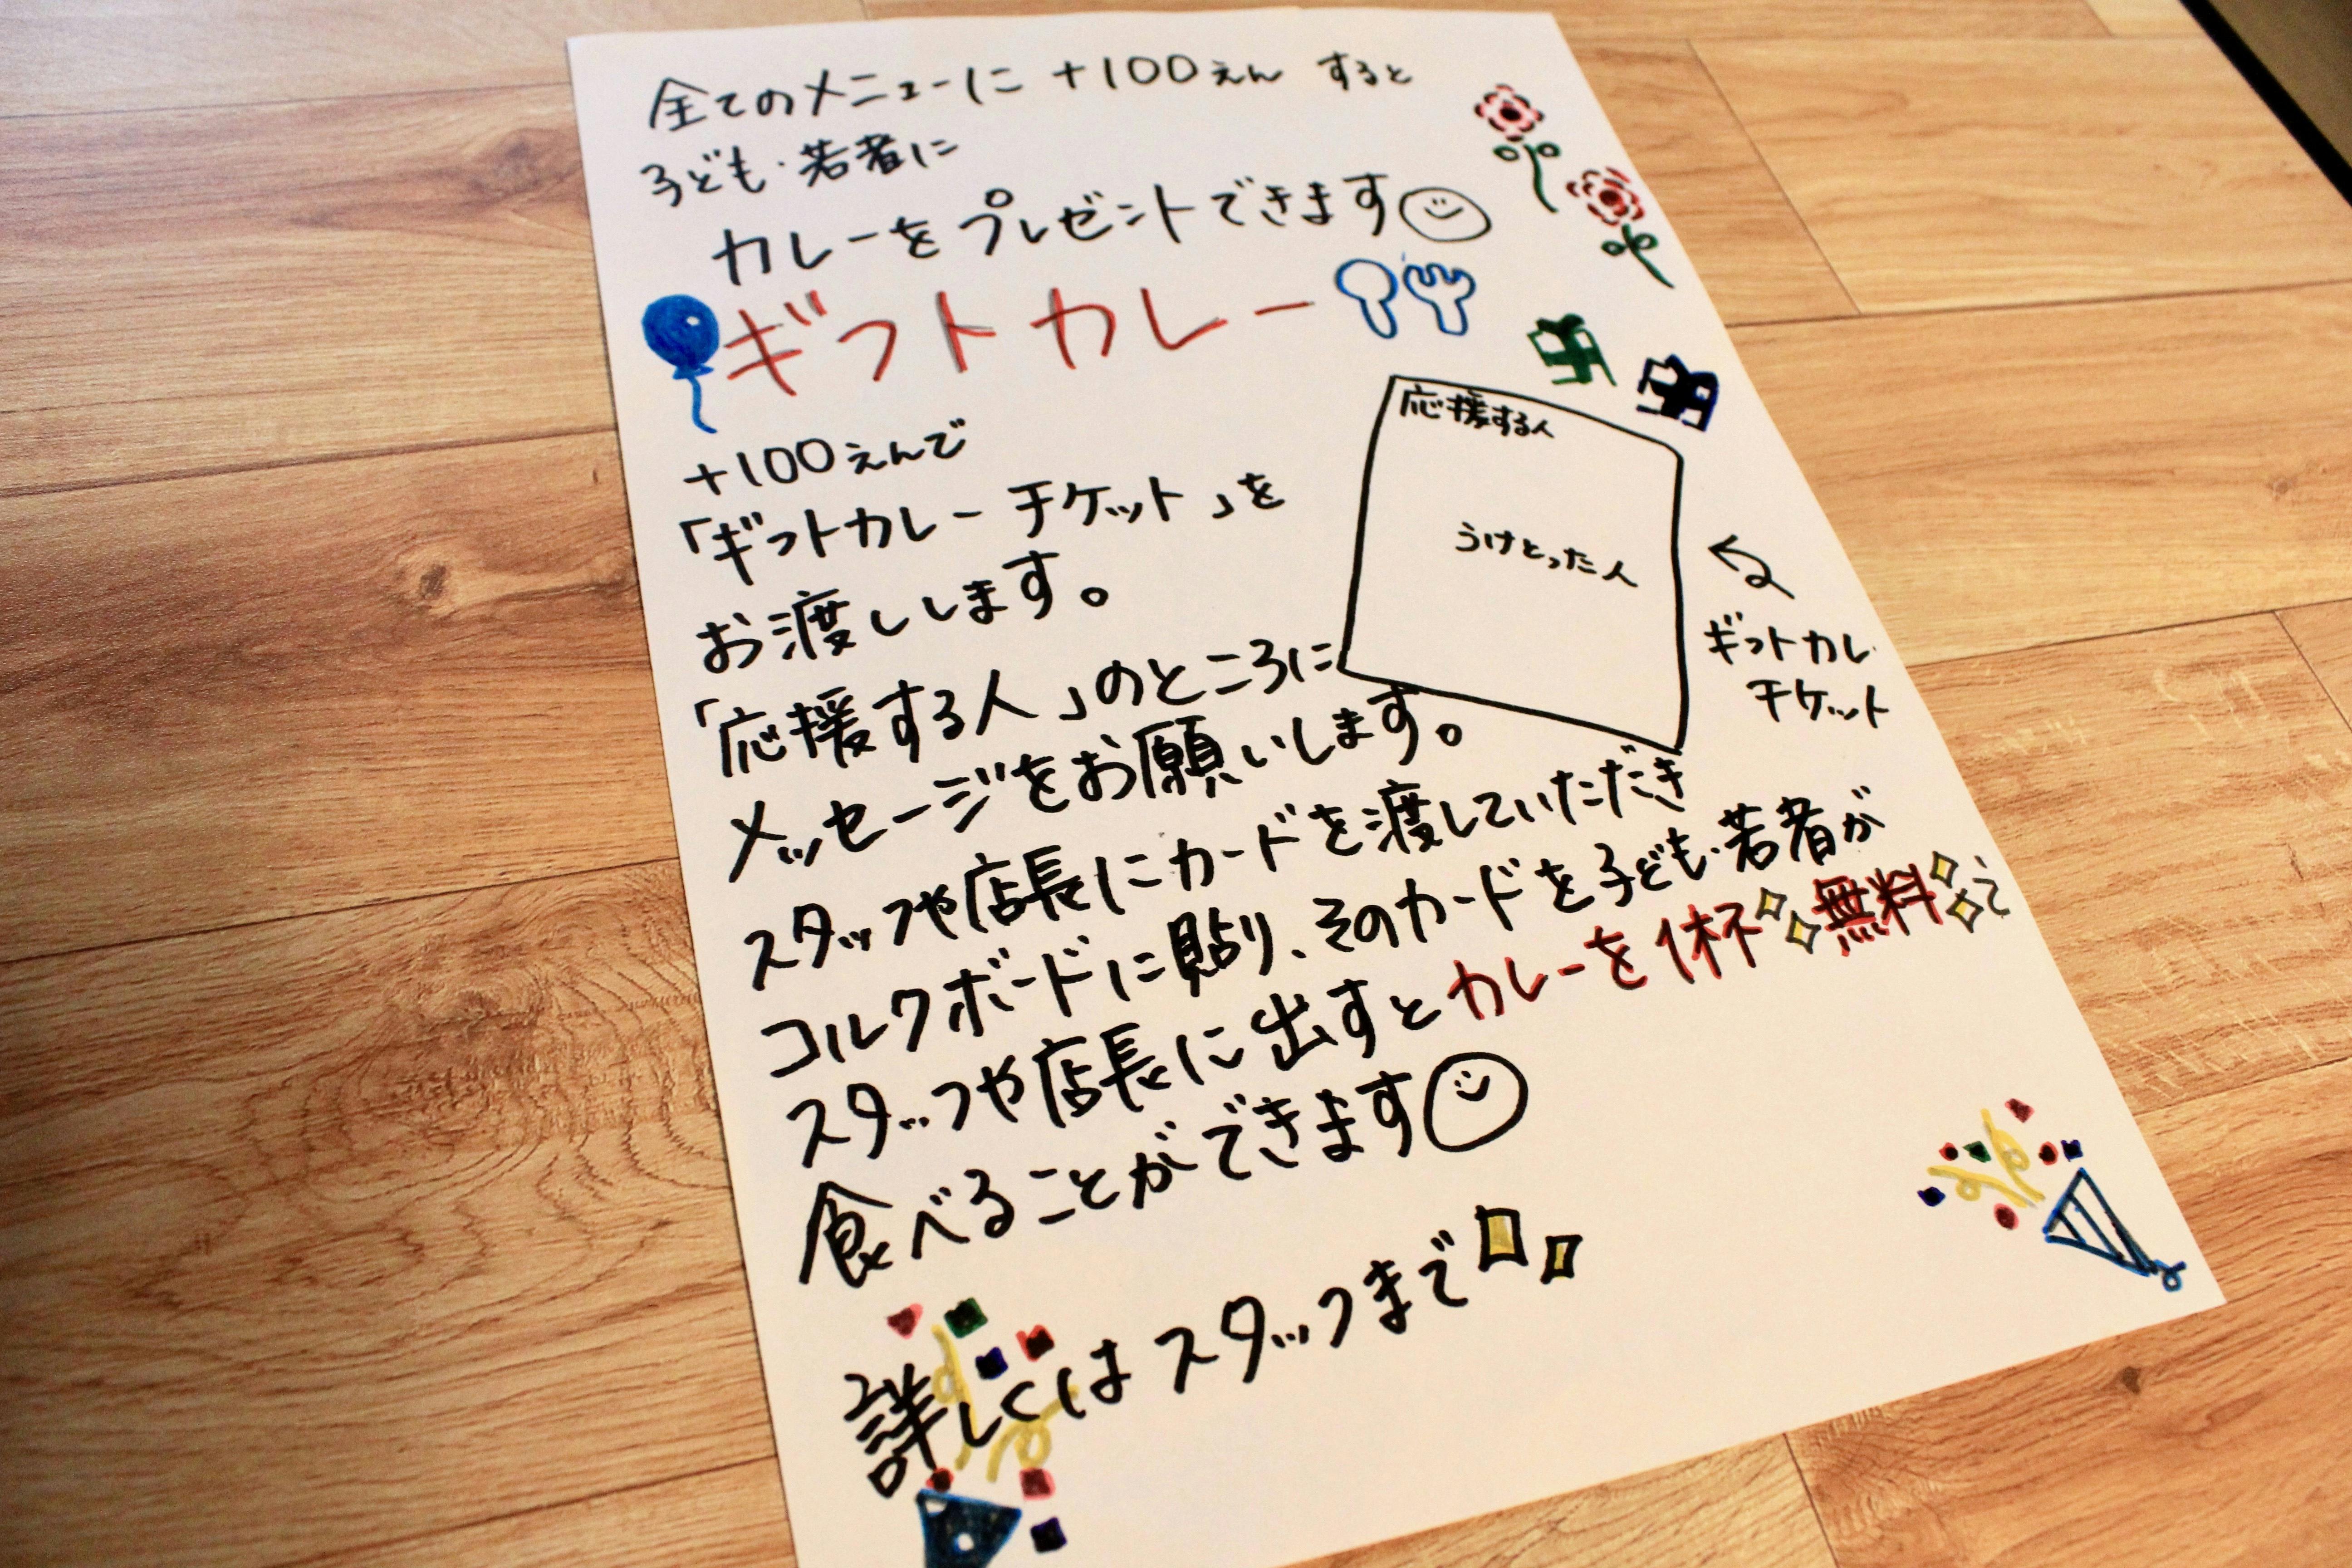 全てのメニューに +100えん すると
子ども・若者に
カレーをプレゼントできます
ギフトカレー
+100えんで
「ギフトカレーチケット」を
お渡しします。
応援する人
うけとった人
ギフトカレー
チケット
「応援する人」のところに
メッセージをお願いします。
スタッフや店長にカードを渡していただき
コルクボードに貼り、そのカードを子ども・若者が
スタッフや店長に出すとカレーを1杯無料で
食べることができます
詳しくはスタッフまで